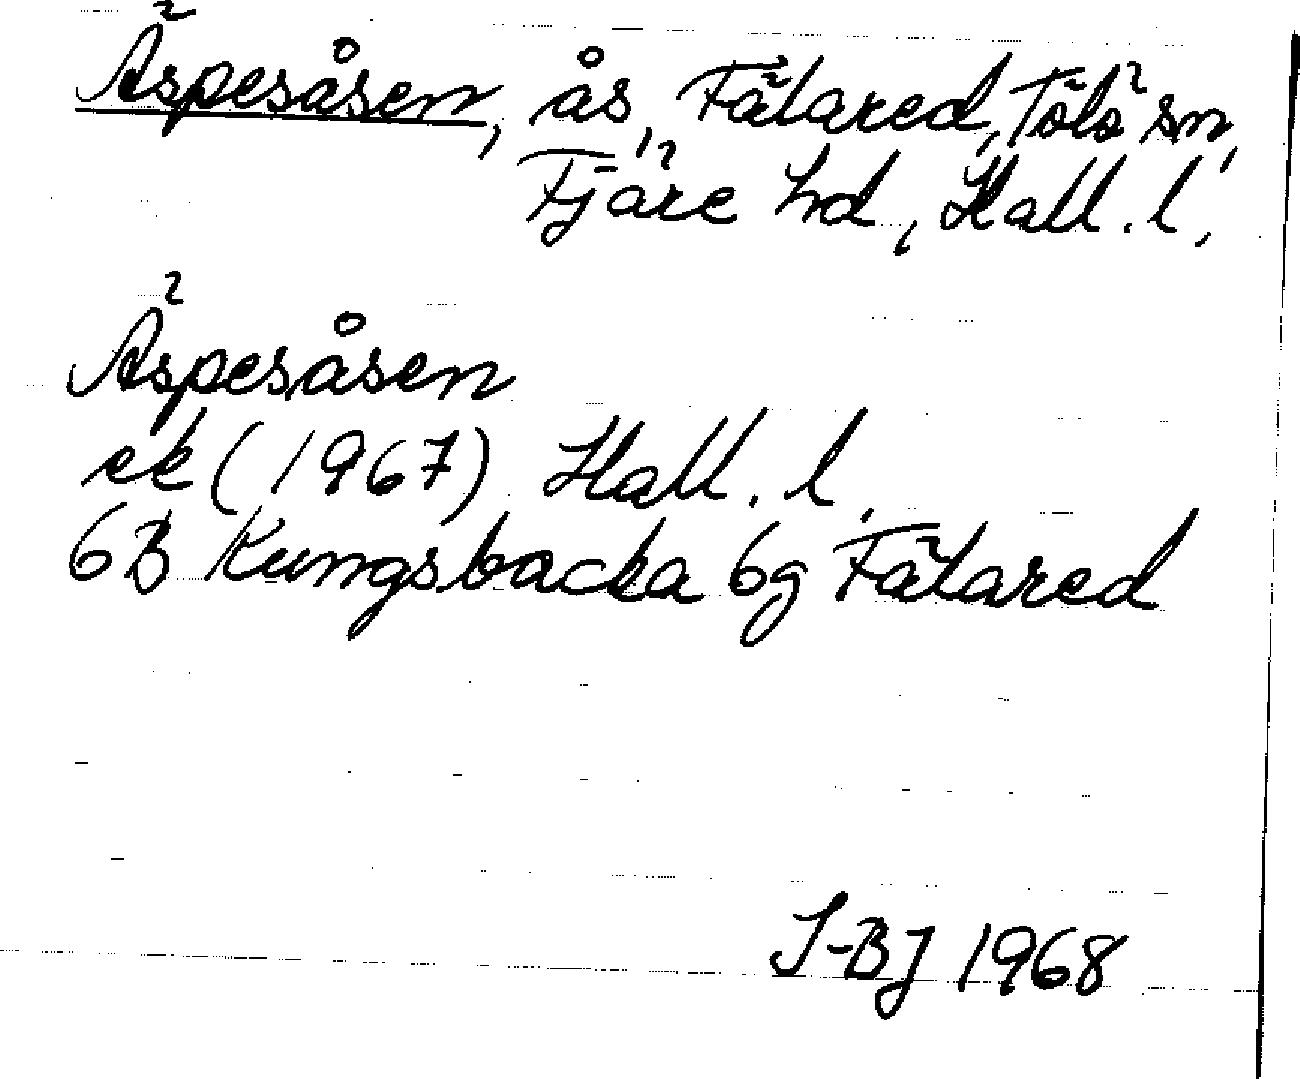 Äspesåsen, ås, Fälared, Tölö sn,
Fjäre hd, Hall. l.
Äspesåsen
ek (1967) Hall. l.
6B Kungsbacka 6g Fälared
I-BJ 1968